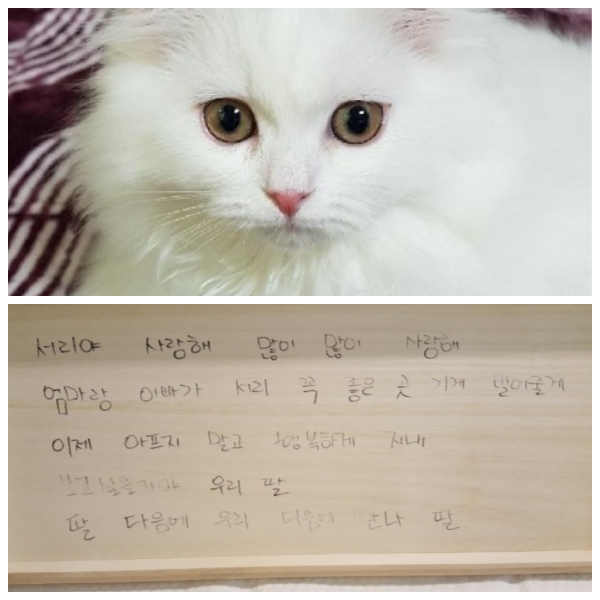 서리야 사랑해 많이 많이 사랑해
엄마랑 아빠가 서리 꼭 좋은 곳 가게 빌어줄게
이제 아프지 말고 행복하게 지내
우리 딸
딸 다음에 우리 다음에 만나 딸